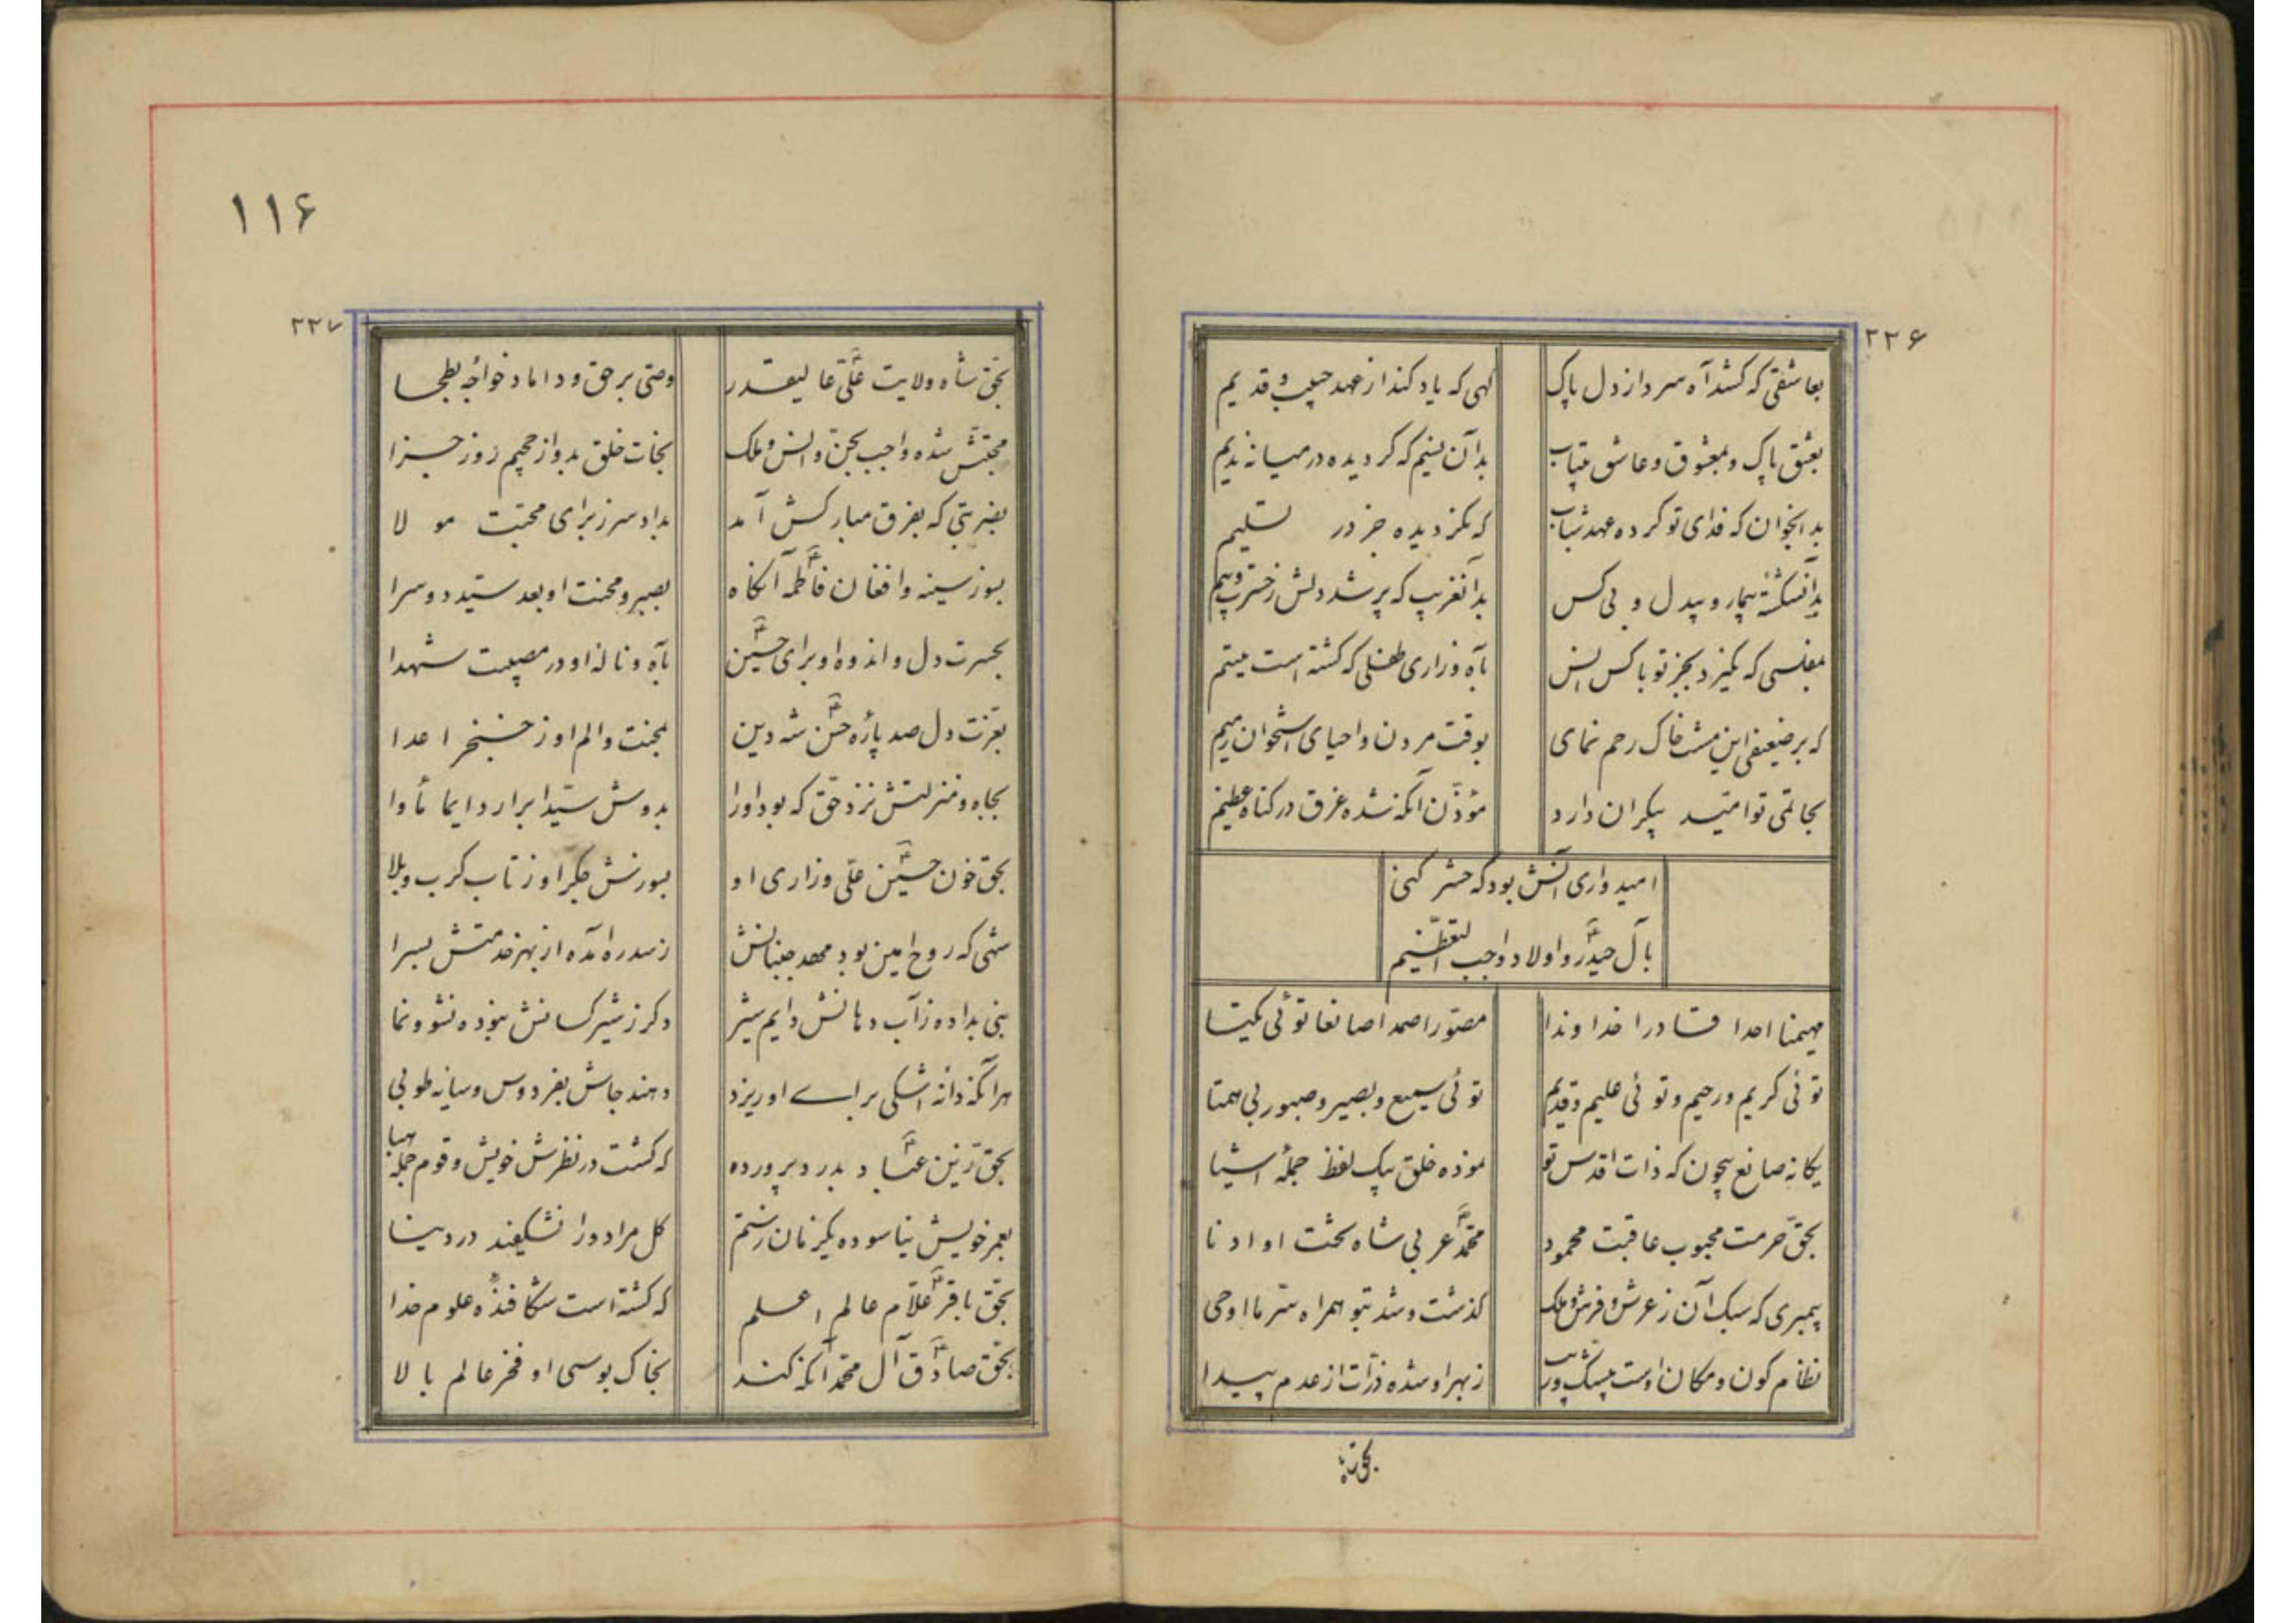 ۲۲۶
بعاشقی که کشد آه سرد از دل پاک گهی که یاد کند از عهد حبیب قدیم
بعشق پاک و بمعشوق و عاشق بیتاب بدان نسیم که گردیده در میانه ندیم
بدانجوان که فدای تو کرده عهد شباب که نگزدیده جز در تسلیم
بدانشکسته بیمار و بیدل و بی کس بدانغریب که پر شد دلش ز حسرت و بیم
بمفلسی که نگیرد بجز تو با کس انس بآه و زاری طفلی که گشته است یتیم
که بر ضعیفی این مشت خاک رحم نمای بوقت مردن و احیای استخوان رمیم
بجالتی تو امید بیکران دارد مؤذن آنکه شده غرق در گناه عظیم
امیدواری آنش بود که حشر کنی
بآل حیدر و اولاد واجب التعظیم
مهیمنا احدا قادرا خداوندا مصورا صمدا صانعا توئی یکتا
توئی کریم و رحیم و توئی علیم و قدیم توئی سمیع و بصیر و صبور بی همتا
یگانه صانع بیچون که ذات اقدس تو نموده خلق بیک لفظ جمله اشیا
بحق حرمت محبوب عاقبت محمود محمد عربی شاه تخت او ادنا
پیمبری که سبک آن ز عرش و فرش و ملک گذشت و شد بتو همراه سر ما اوحی
نظام کون و مکان اوست بیشک و ریب ز بهر او شده ذرات از عدم پیدا
بحق شاه
۱۱۶
۲۲۷
بحق شاه ولایت علی عالیقدر وصی بر حق و داماد خواجه بطحا
محبتش شده واجب بجن و انس و ملک نجات خلق بدو از جحیم روز جزا
بضربتی که بفرق مبارکش آمد بداد سر ز برای محبت مولا
بسوز سینه و افغان فاطمه آنگاه بصبر و محنت او بعد سید دو سرا
بحسرت دل و اندوه او برای حسین بآه و ناله او در مصیبت شهدا
بعزت دل صد پاره حسن شه دین بمحنت و الم او ز خنجر اعدا
بجاه و منزلتش نزد حق که بود او را بدوش سید ابرار دایما مأوا
بحق خون حسین علی و زاری او بسوزش جگر او ز تاب کرب و بلا
شهی که روح امین بود مهد جنبانش ز سدره آمده از بهر خدمتش بسرا
نبی بداده ز آب دهانش دایم شیر دگر ز شیر کسانش نبوده نشو و نما
هر آنکه دانه اشکی برای او ریزد دهند جاش بفردوس و سایه طوبی
بحق زین عباد بدرد پرورده که کشت در نظرش خویش و قوم جمله
بعمر خویش نیاسوده یکزمان ز ستم گل مراد ورا نشکفند در دنیا
بحق باقر علام عالم اعلم که گشته است شکافنده علوم خدا
بحق صادق آل محمد آنکه کند بخاک بوسی او فخر عالم بالا